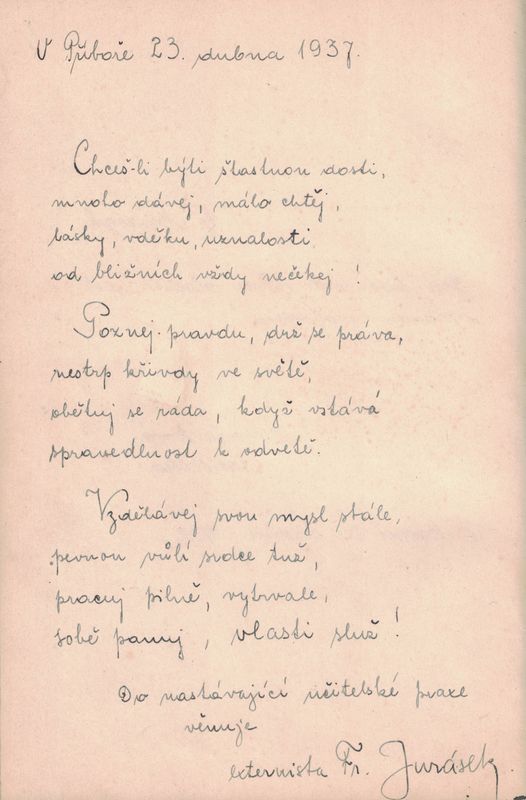 V Příboře 23. dubna 1937.
Chceš-li býti šťastnou dosti,
mnoho dávej, málo chtěj,
lásky, vděku, uznalosti
od bližních vždy nečekej!
Poznej pravdu, drž se práva,
nestrp křivdy ve světě,
obětuj se ráda, když vstává
spravedlnost k odvetě.
Vzdělávej svou mysl stále,
pevnou vůlí srdce tuž,
pracuj pilně, vytrvale,
sobě panuj, vlasti služ!
Do nastávající učitelské praxe
věnuje
externista Fr. Jurásek